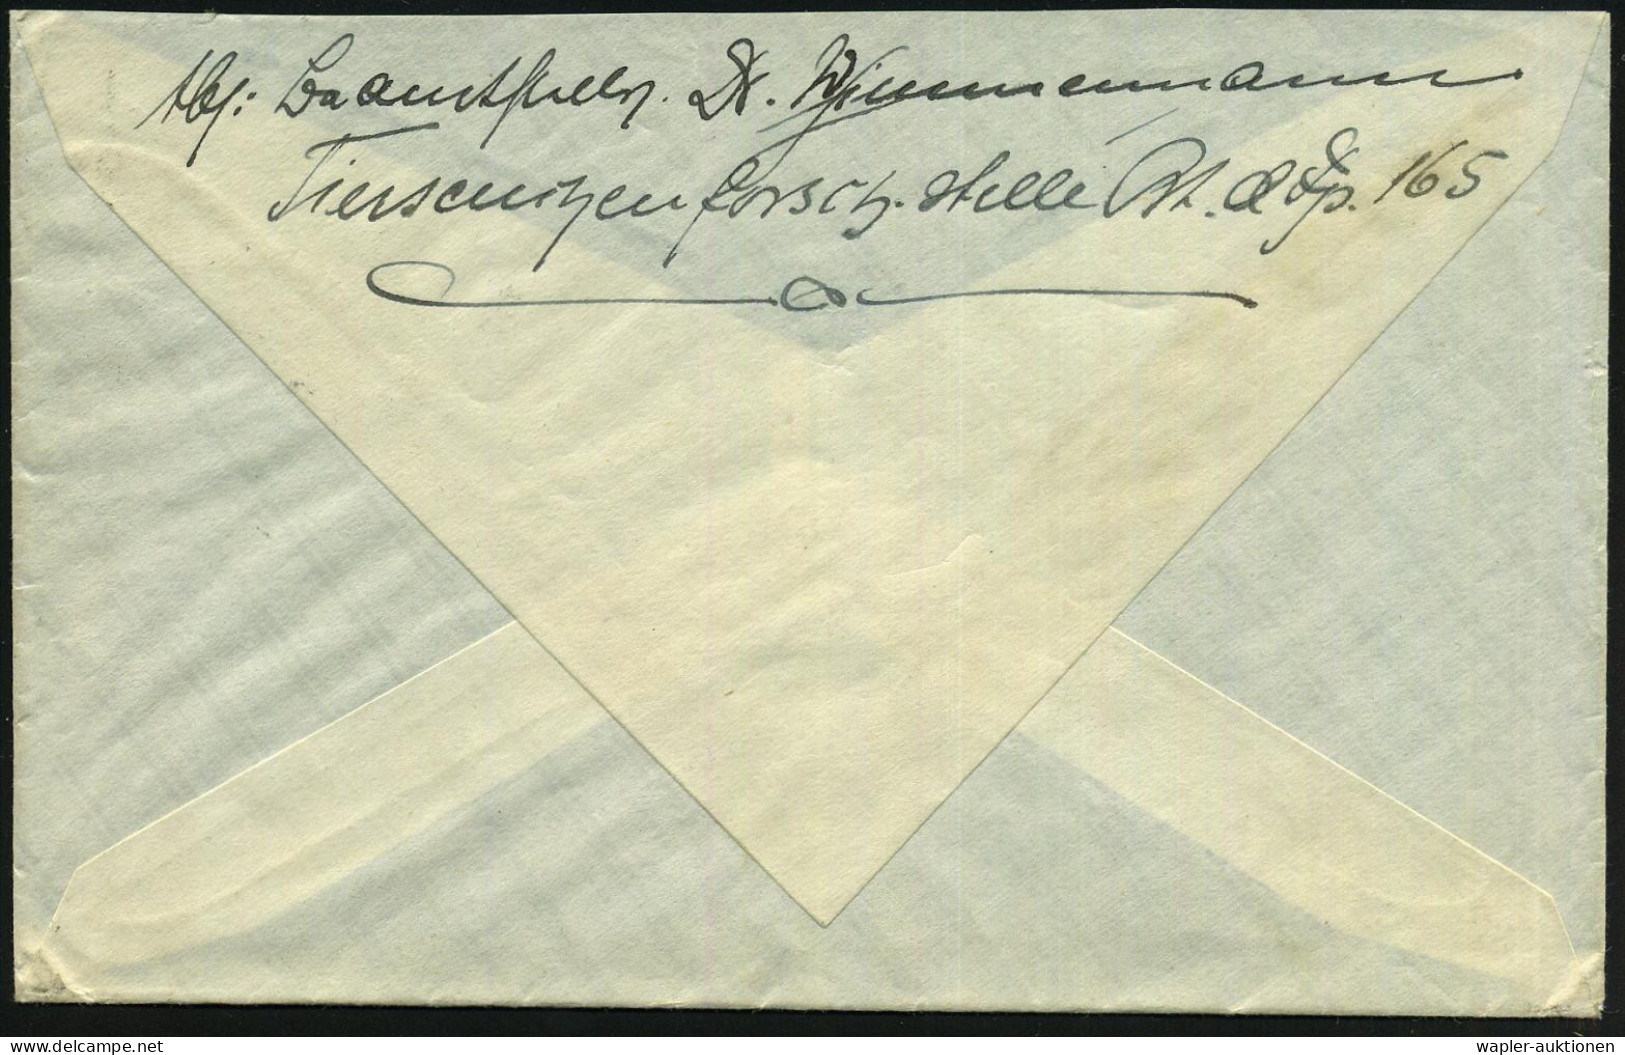 Abs: Beamtstellv. Dr. Wimmemann
Tierseuchenforsch.stelle Ost. d Fp. 165
www.delcampe.net
wapler-auktionen